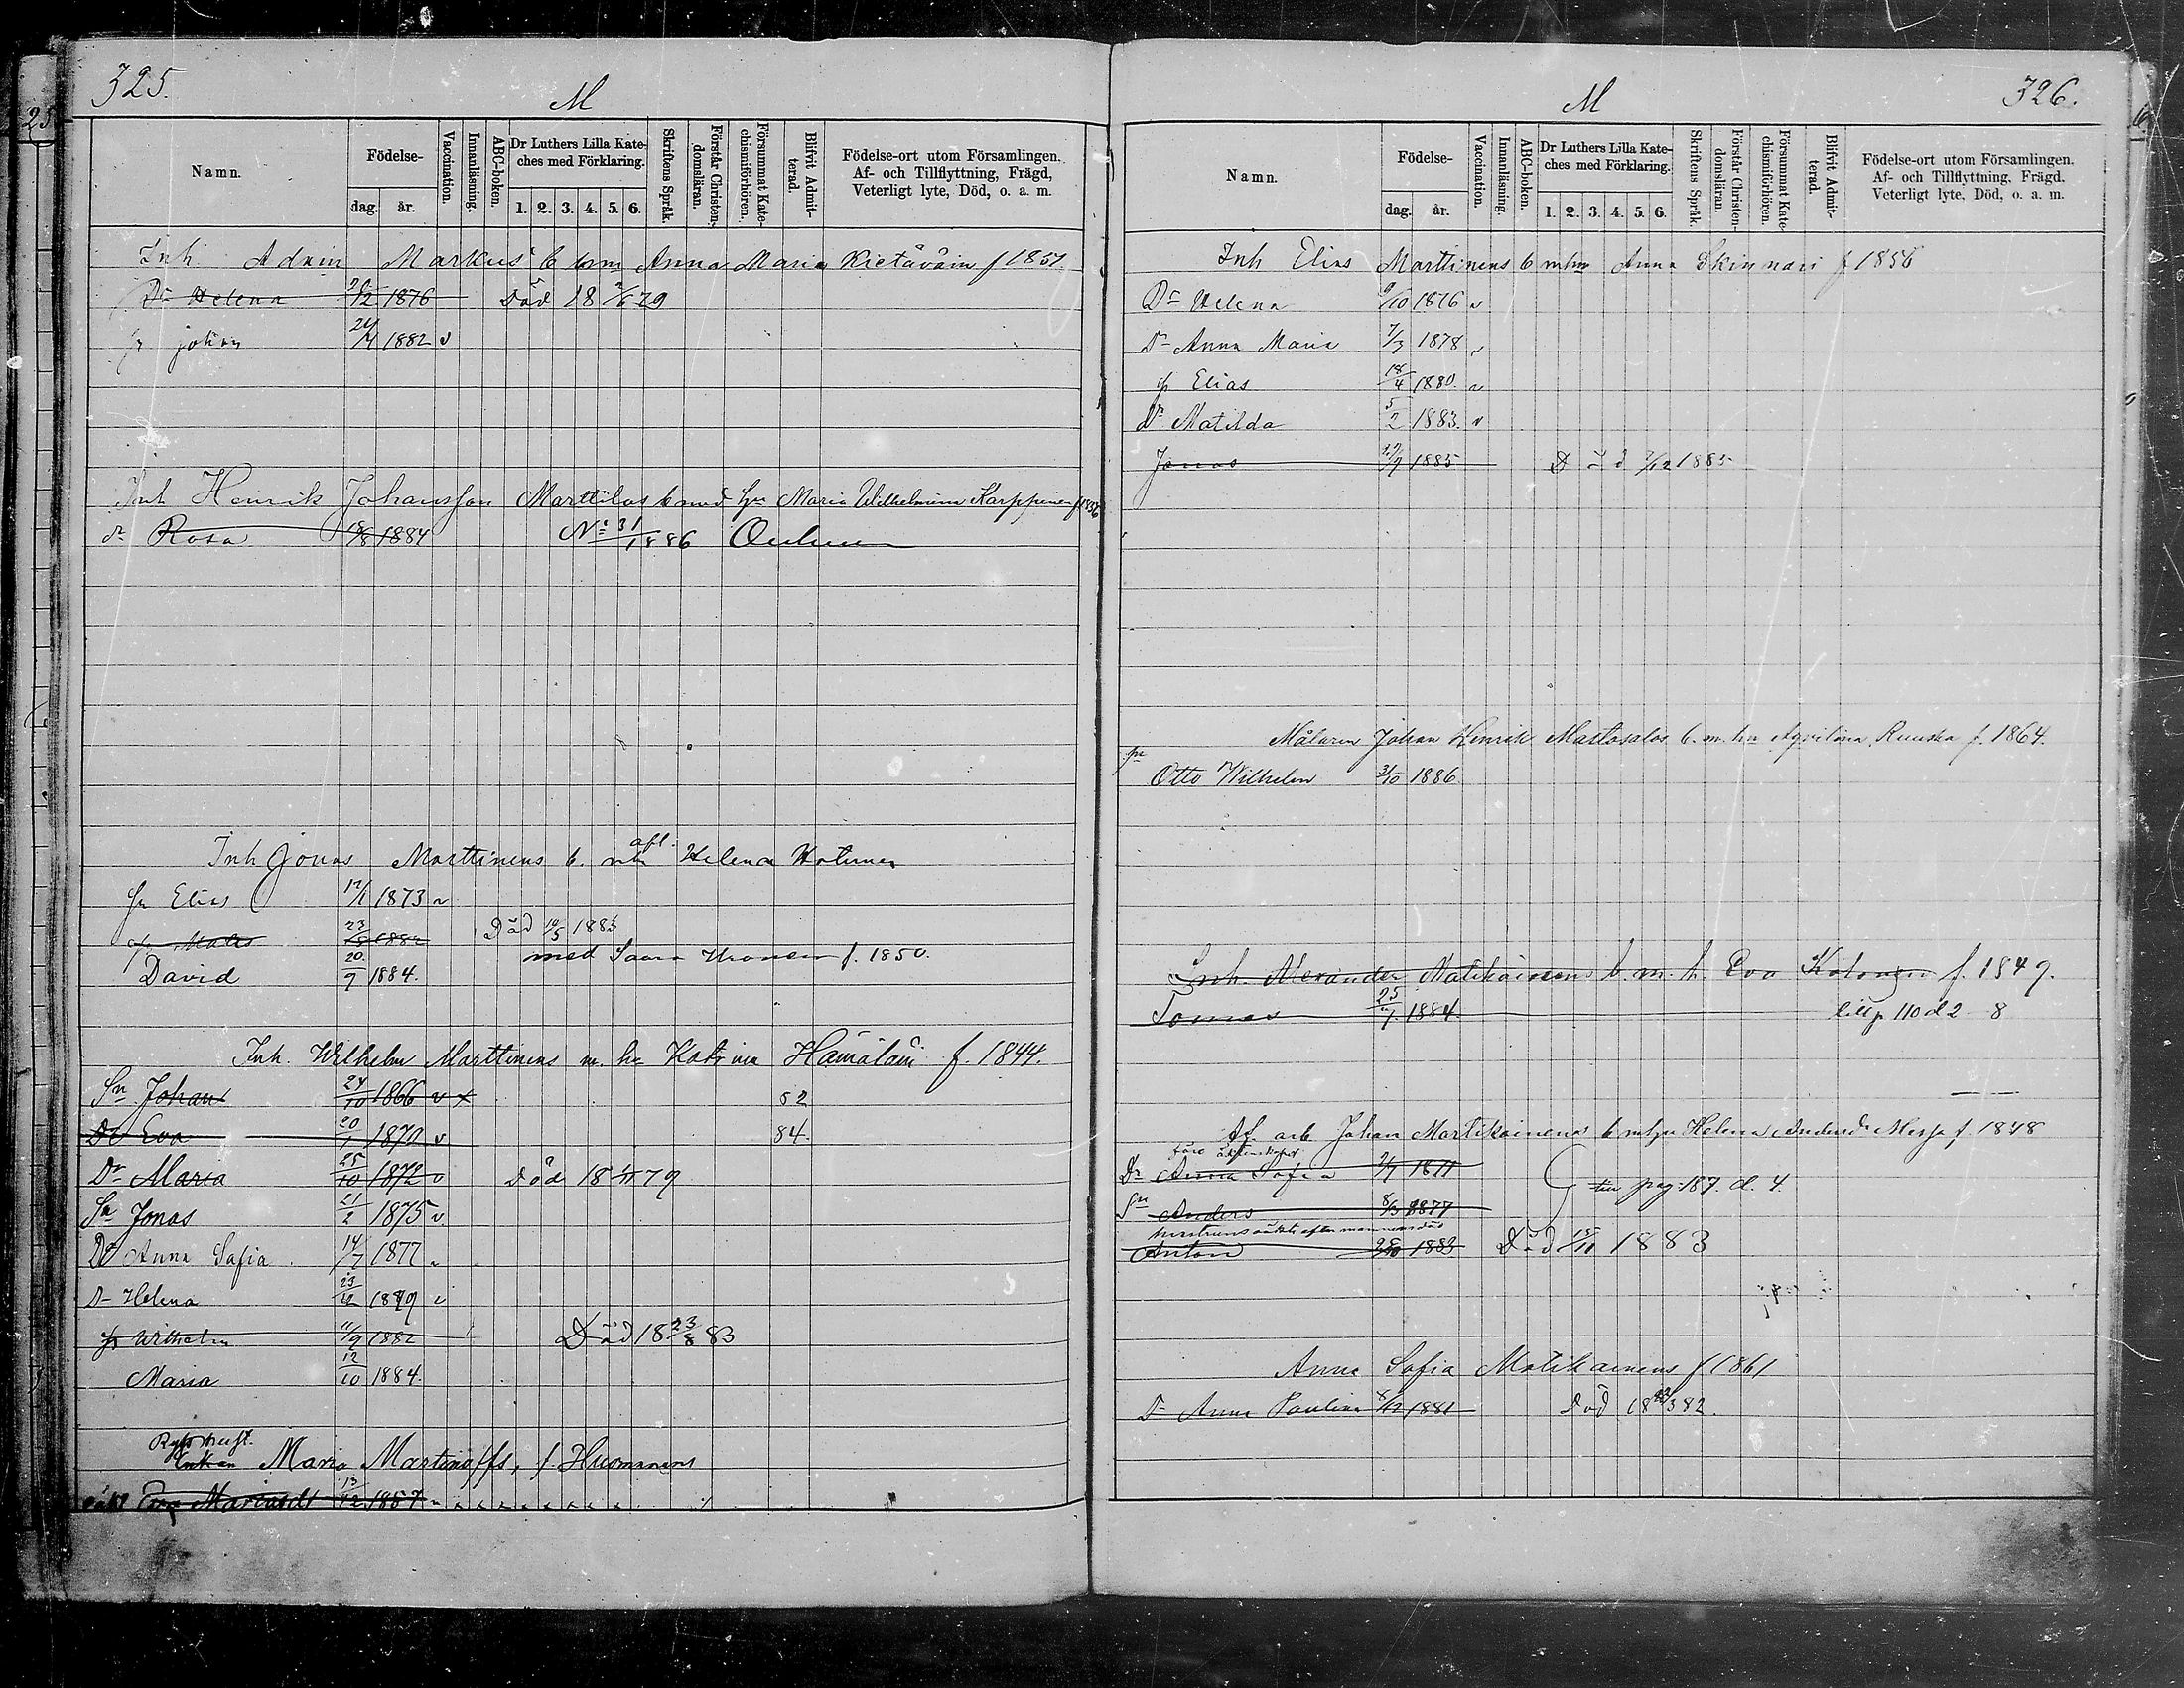 325.
M
Namn.
Födelse-
dag. år.
Vaccination.
Innanläsning.
ABC-boken.
Dr Luthers Lilla Kate-
ches med Förklaring.
1. 2. 3. 4. 5. 6.
Skriftens Språk.
Förstår Christen-
domsläran.
Försummat Kate-
chismiförhören.
Blifvit Admit-
terad.
Födelse-ort utom Församlingen.
Af- och Tillflyttning, Frägd,
Veterligt lyte, Död, o. a. m.
Inh. Adam Markus b Anna Maria Kietäväin f 1857
Dr Helena 1876 Död 18 79
johan 24/4 1882 v
Inh Henrik Johansson Marttilas b med hu Maria Wilhelmina Karppinen
dr Rosa 1884 No 31/1886 Oulu
Inh Jonas Marttinens b. afl. Helena
Sn Elias 12/1 1873 v
23/8 1882 Död 10/5 1883
med Saara f. 1850.
David 20/9 1884.
Inh. Wilhelm Marttinens m. hu Katrina Hämäläi f. 1844.
Sn Johan 24/10 1866 v x 52
Dr Eva 20/1 1870 v 84.
Dr Maria 25/10 1872 v Död 18 79
Sn Jonas 21/2 1875 v
Dr Anna Sofia 14/7 1877 v
Dr Helena 23/12 1879 v
Wilhelm 11/9 1882 Död 18 23/8 83
Maria 12/10 1884.
Enkan Maria Martinoffs, f. Huomanens
oäkt Eva Mariasdr 13/12 1857
326.
M
Namn.
Födelse-
dag. år.
Vaccination.
Innanläsning.
ABC-boken.
Dr Luthers Lilla Kate-
ches med Förklaring.
1. 2. 3. 4. 5. 6.
Skriftens Språk.
Förstår Christen-
domsläran.
Försummat Kate-
chismiförhören.
Blifvit Admit-
terad.
Födelse-ort utom Församlingen.
Af- och Tillflyttning, Frägd.
Veterligt lyte, Död, o. a. m.
Inh Elias Marttinens b mhu Anna Skinnari f 1856
Dr Helena 9/10 1876 v
Dr Anna Maria 7/3 1878 v
Elias 18/4 1880. v
Dr Matilda 5/2 1883. v
Jonas 1885 Död 7/12 1885
Målaren Johan Henrik Martosalos b. m. hu Ruuska f. 1864.
Otto Wilhelm 31/10 1886
Inh. Alexander Matikainens b. m. h. Eva f. 1849.
Tomas 25/1. 1884. till p 110 d 2 8
Af. arb Johan Martikainens b mhu Helena Andersdr f 1848
före äktenskapet
Dr Anna Sofia
tu pag 187. d. 4.
Sn Anders 8/3 1877
hustruns oäkta efter mannens död
Anton 1883 Död 15/11 1883
Anna Sofia Matikainens f 1861
Dr Anna Paulina 8/12 1881 Död 18 82.